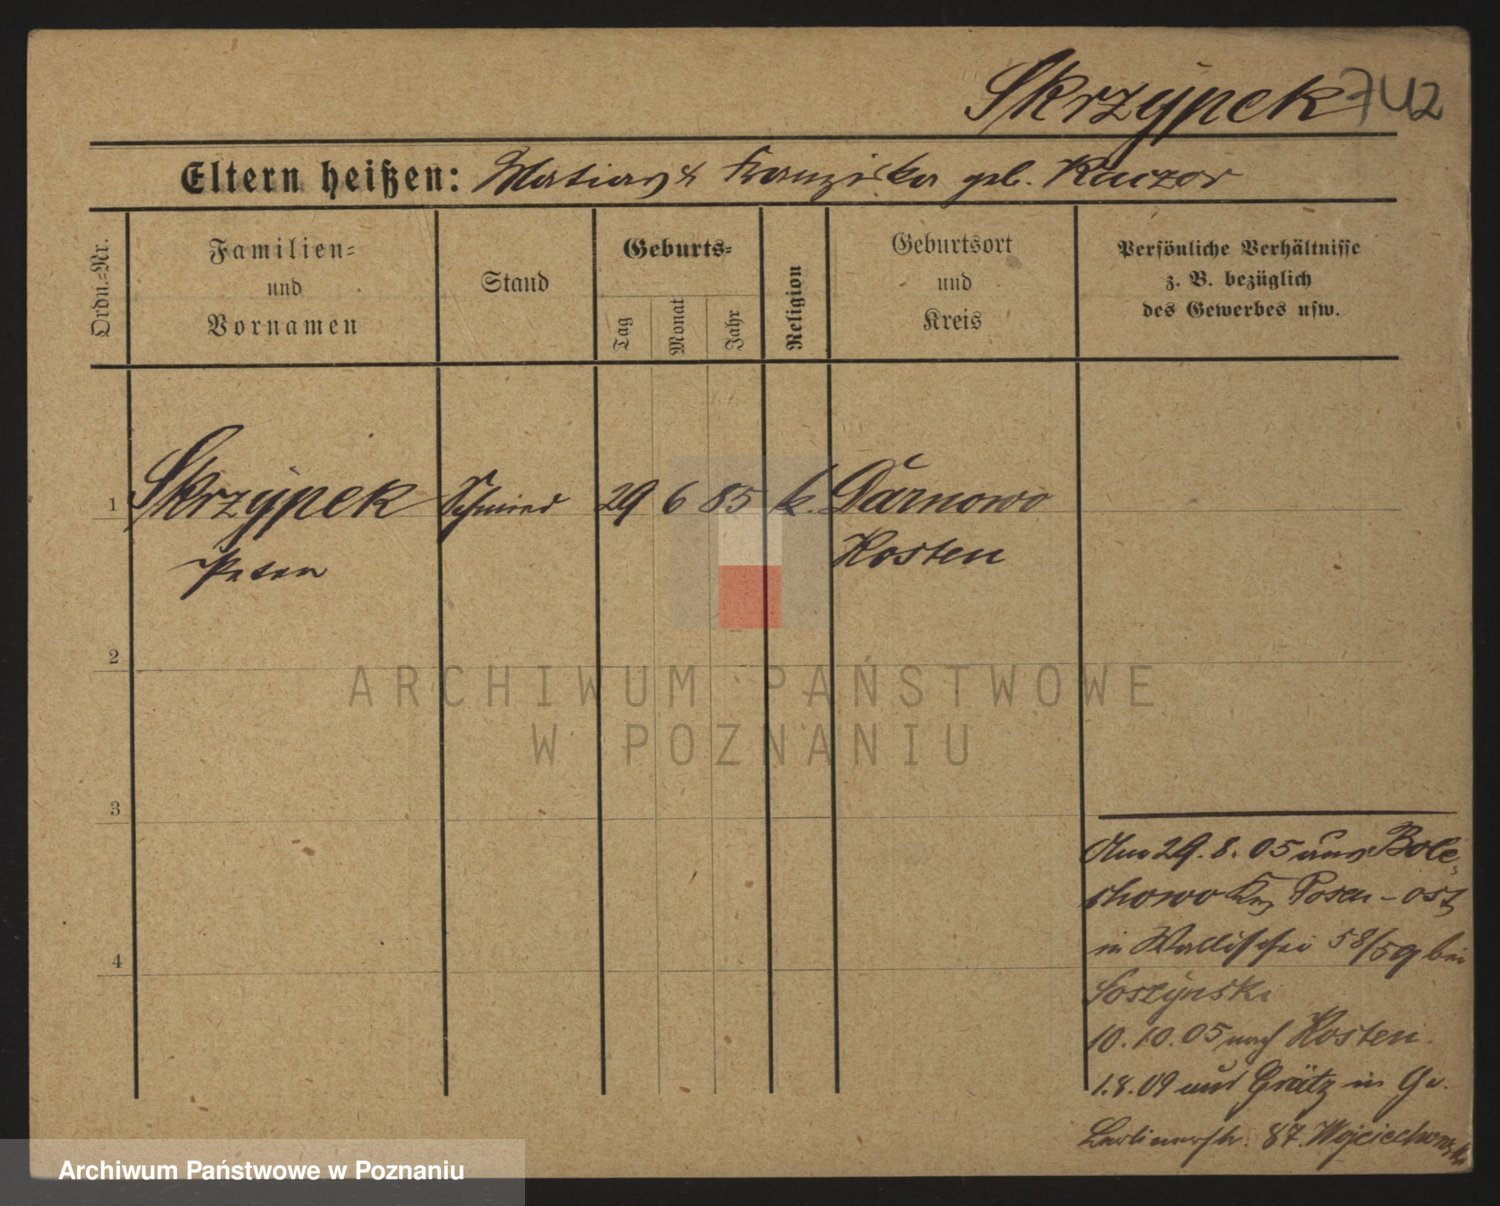 Skrzypek 742
Eltern heißen: Matias & Franziska geb. Kaczor
Ordn.-Nr.
Familien-
und
Vornamen
Stand
Geburts-
Tag
Monat
Jahr
Religion
Geburtsort
und
Kreis
Persönliche Verhältnisse
z. B. bezüglich
des Gewerbes usw.
1 Skrzypek Schmied 29 6 85 k. Darnowo
Peter Kosten
2
3
4
29.8.05 aus Bole-
chowo Krs Posen-ost
in Wallischei 58/59 bei
Soszynski
10.10.05 nach Kosten.
1.8.09 aus Grätz in
Berlinerstr. 87. Wojciechowski
ARCHIWUM PAŃSTWOWE
W POZNANIU
Archiwum Państwowe w Poznaniu